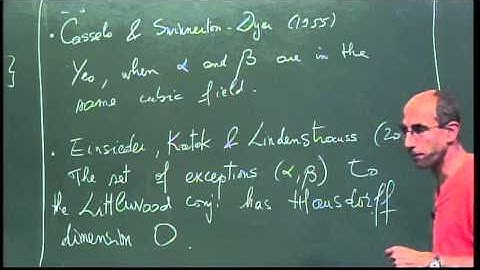 • Cassels & Swinnerton-Dyer (1955)
Yes, when α and β are in the
same cubic field.
}
• Einsiedler, Katok & Lindenstrauss (20
The set of exceptions (α,β) to
the Littlewood conj. has Hausdorff
dimension 0.